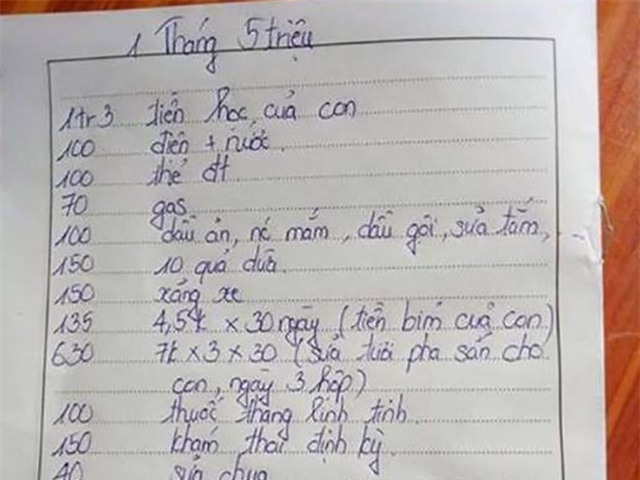 1 Tháng 5 triệu
1tr3 tiền học của con
100 điện + nước.
100 thẻ đt
70 gas
100 dầu ăn, nc mắm, dầu gội, sữa tắm,
150 10 quả dừa.
150 xăng xe
135 4,5k x 30 ngày (tiền bỉm của con)
630 7k x 3 x 30 (sữa tươi pha sẵn cho
con, ngày 3 hộp)
100 thuốc thang linh tinh.
150 khám thai định kỳ.
40 sữa chua